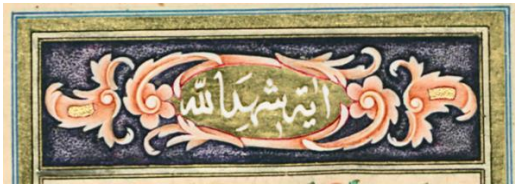 اية شهد الله